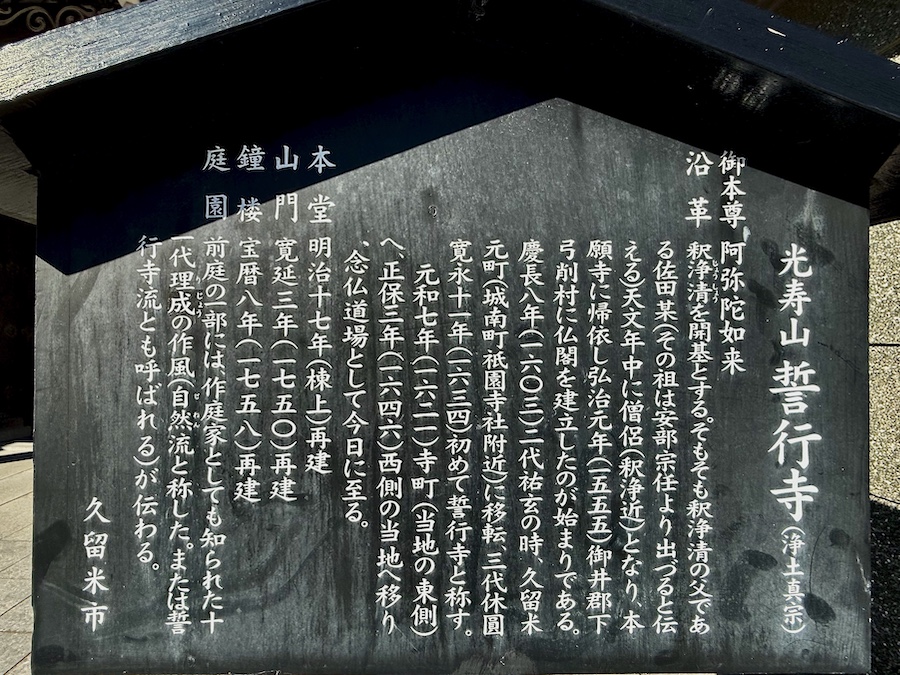 光寿山 誓行寺(浄土真宗)
御本尊 阿弥陀如来
沿革 釈浄清を開基とする。そもそも釈浄清の父であ
る佐田某(その祖は安部宗任より出づると伝
える)天文年中に僧侶(釈浄近)となり、本
願寺に帰依し弘治元年(一五五五)御井郡下
弓削村に仏閣を建立したのが始まりである。
慶長八年(一六〇三)二代祐玄の時、久留米
元町(城南町祇園寺社附近)に移転、三代休圓
寛永十一年(一六三四)初めて誓行寺と称す。
元和七年(一六二一)寺町(当地の東側)
へ、正保三年(一六四六)西側の当地へ移り
、念仏道場として今日に至る。
本堂 明治十七年(棟上)再建
山門 寛延三年(一七五〇)再建
鐘楼 宝暦八年(一七五八)再建
庭園 前庭の一部には、作庭家としても知られた十
一代理成の作風(自然流と称した。または誓
行寺流とも呼ばれる)が伝わる。
久留米市